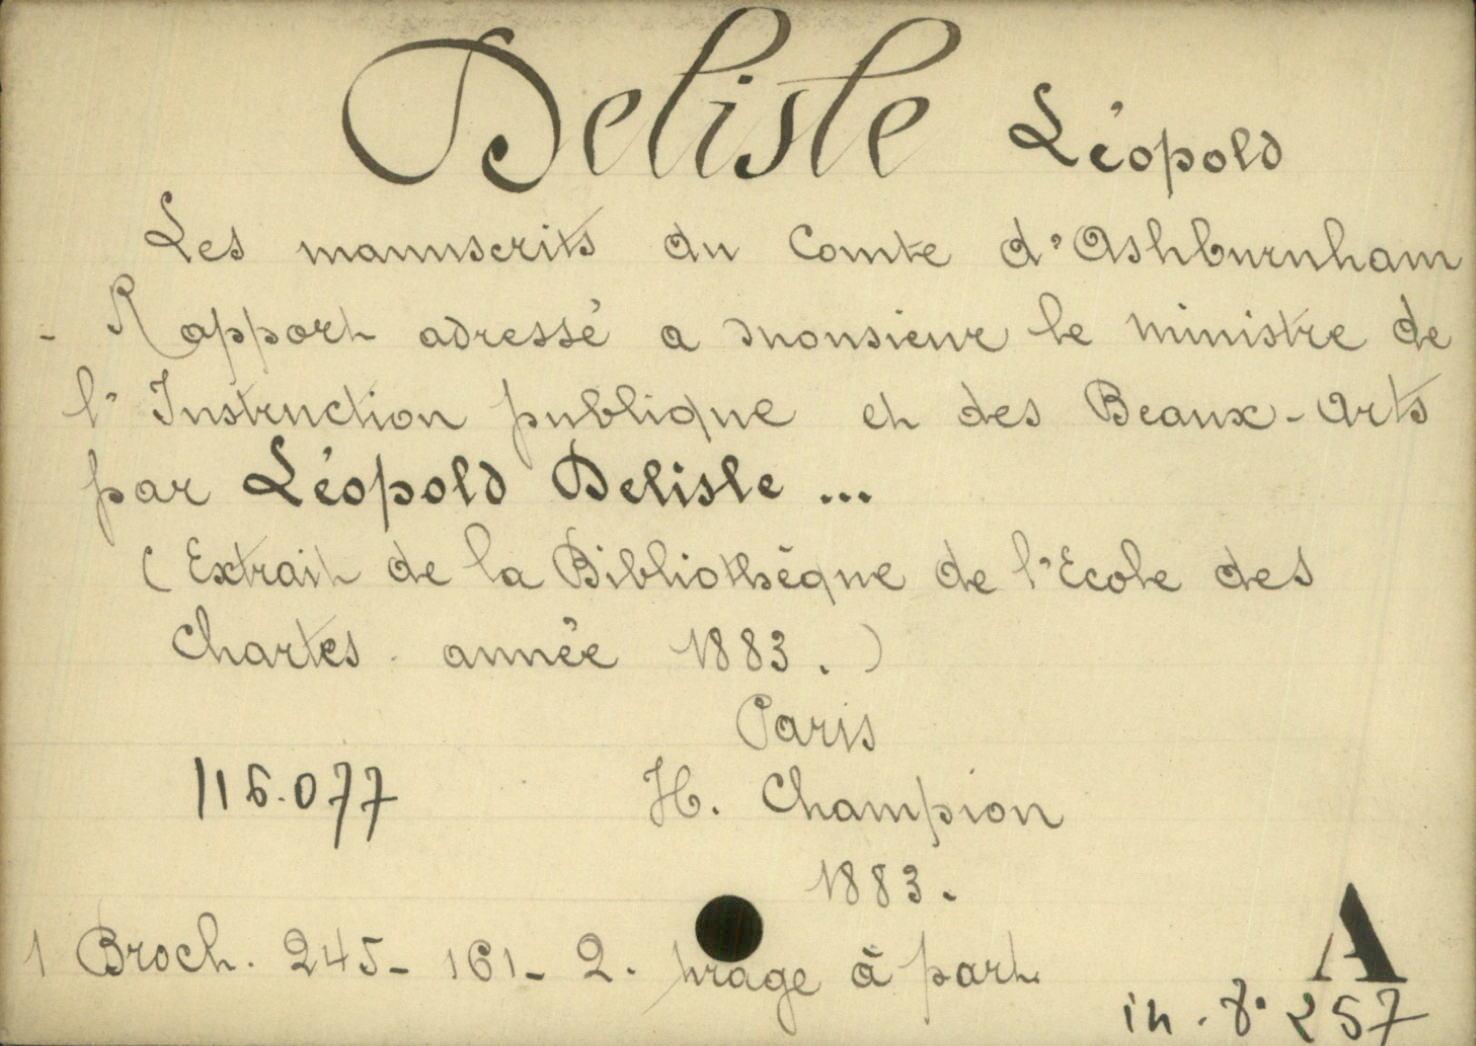 Delisle Léopold
Les manuscrits du Comte d'Ashburnham
- Rapport adressé a monsieur le ministre de
l'Instruction publique et des Beaux-Arts
par Léopold Delisle ...
(Extrait de la Bibliothèque de l'Ecole des
Chartes. année 1883.)
Paris
116.077 H. Champion
1883.
1 Broch. 245- 161- 2. tirage à part
A
in-8° 257